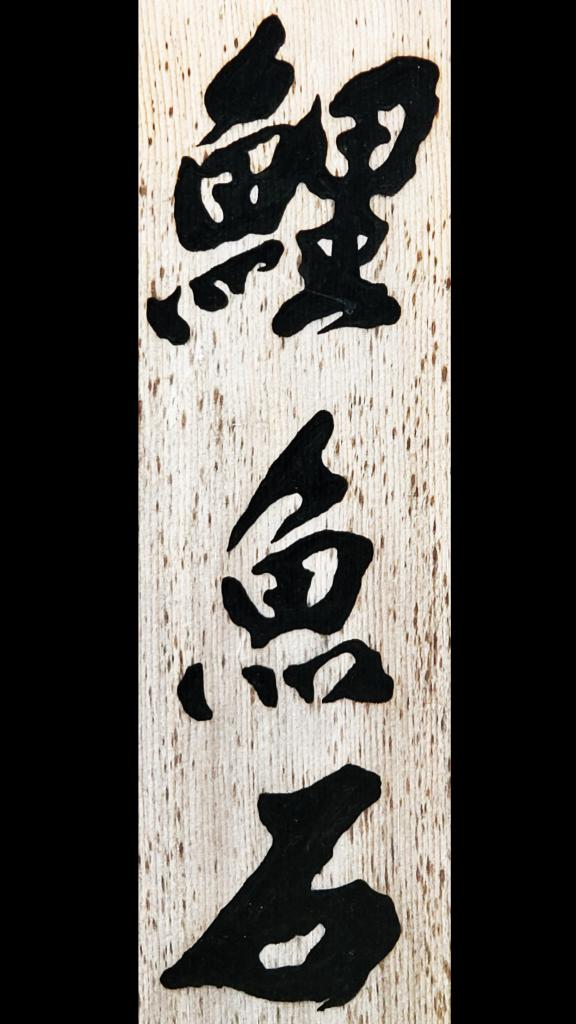 鯉魚石